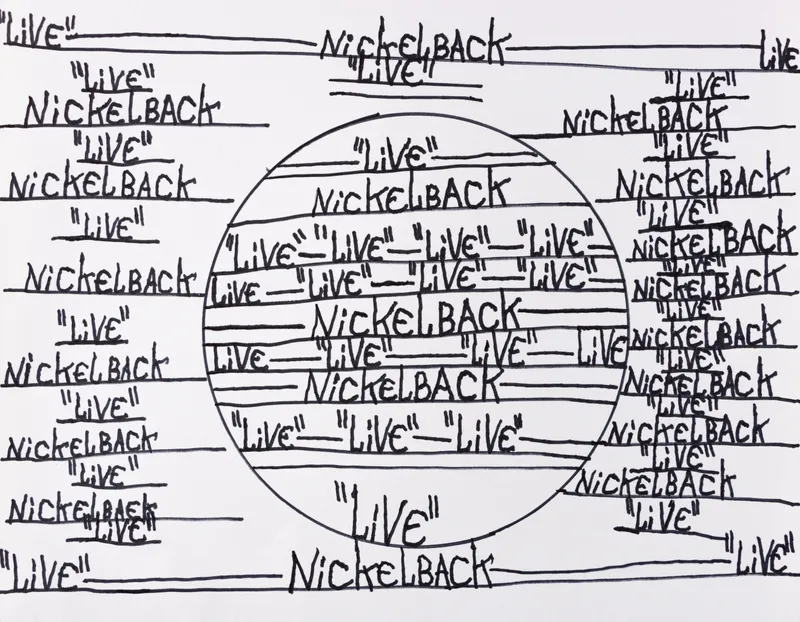 "LiVE" NickELBACK LiVE
"LiVE"
"LiVE"
NickELBACK
"LiVE"
NickELBACK
"LiVE"
NickELBACK
"LiVE"
NickELBACK
"LiVE"
NickELBACK
"LiVE"
NickELBACK
"LiVE"
"LiVE"
NickELBACK
"LiVE" — "LiVE" — "LiVE" — "LiVE"
LiVE — "LiVE" — "LiVE" — "LiVE"
NickELBACK
LiVE — "LiVE" — "LiVE" — LiVE
NickELBACK
"LiVE" — "LiVE" — "LiVE"
"LiVE"
"LiVE"
NickELBACK
"LiVE"
NickELBACK
"LiVE"
NickELBACK
"LiVE"
NickELBACK
"LiVE"
NickELBACK
"LiVE"
NickELBACK
"LiVE"
NickELBACK
"LiVE"
NickELBACK
"LiVE"
"LiVE" NickELBACK "LiVE"